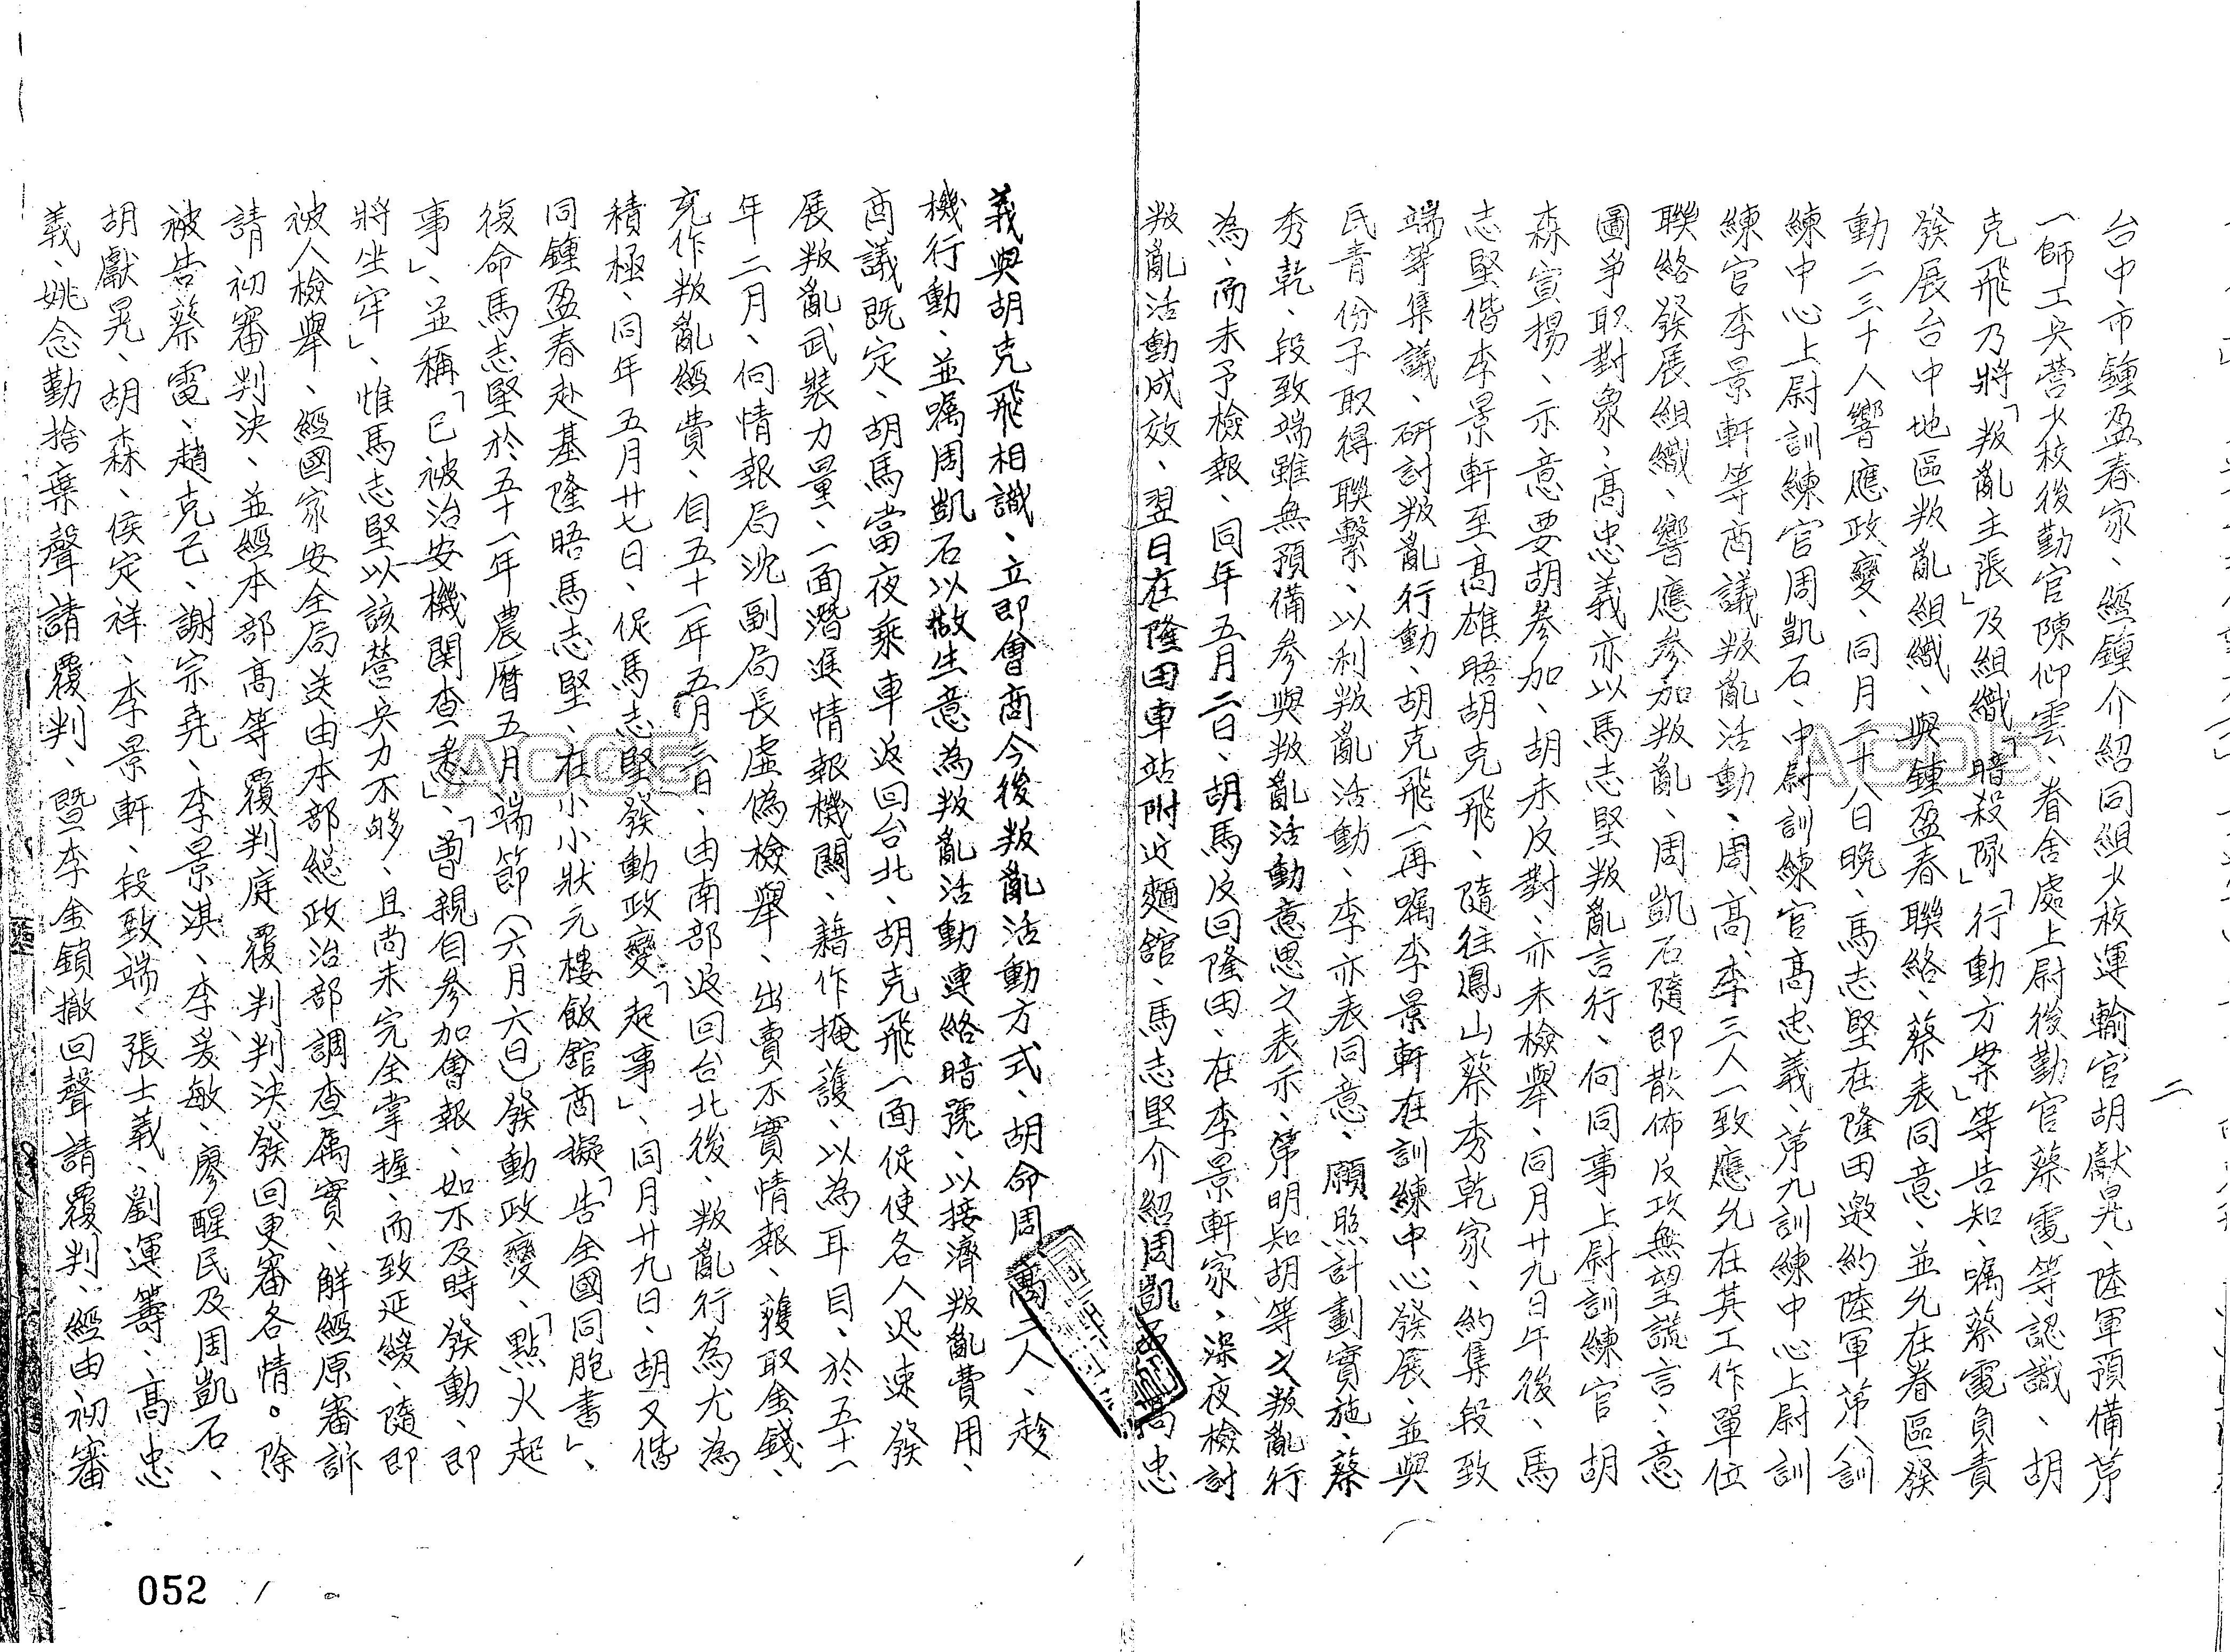 二
台中市鍾盈春家、經鍾介紹同組少校運輸官胡獻晃、陸軍預備第
一師工兵營少校後勤官陳仰雲、眷舍處上尉後勤官蔡電等認識、胡
克飛乃將「叛亂主張」及組織「暗殺隊」「行動方案」等告知、囑蔡電負責
發展台中地區叛亂組織、與鍾盈春聯絡、蔡表同意、並允在眷區發
動二三十人響應政變、同月二十八日晚、馬志堅在隆田邀約陸軍第八訓
練中心上尉訓練官周凱石、中尉訓練官高忠義、第九訓練中心上尉訓
練官李景軒等商議叛亂活動、周、高、李三人一致應允在其工作單位
聯絡發展組織、響應參加叛亂、周凱石隨即散佈反攻無望謊言、意
圖爭取對象、高忠義亦以馬志堅叛亂言行、向同事上尉訓練官胡
森宣揚、示意要胡參加、胡未反對、亦未檢舉、同月廿九日午後、馬
志堅偕李景軒至高雄晤胡克飛、隨往鳳山蔡秀乾家、約集段致
端等集議、研討叛亂行動、胡克飛一再囑李景軒在訓練中心發展、並與
民青份子取得聯繫、以利叛亂活動、李亦表同意、願照計劃實施、蔡
秀乾、段致端雖無預備參與叛亂活動意思之表示、第明知胡等之叛亂行
為、而未予檢報、同年五月二日、胡馬反回隆田、在李景軒家、深夜檢討
叛亂活動成效、翌日在隆田車站附近麵舘、馬志堅介紹周凱石高忠
義與胡克飛相識、立即會商今後叛亂活動方式、胡命周高二人、趁
機行動、並囑周凱石以做生意為叛亂活動連絡暗號、以接濟叛亂費用、
商議既定、胡馬當夜乘車返回台北、胡克飛一面促使各人迅速發
展叛亂武裝力量、一面潛進情報機關、藉作掩護、以為耳目、於五十一
年二月、向情報局沈副局長虛偽檢舉、出賣不實情報、獲取金錢、
充作叛亂經費、自五十一年五月三日、由南部返回台北後、叛亂行為尤為
積極、同年五月廿七日、促馬志堅發動政變「起事」、同月廿九日、胡又偕
同鍾盈春赴基隆晤馬志堅、在小小狀元樓飯舘商擬「告全國同胞書」、
復命馬志堅於五十一年農曆五月端節(六月六日)發動政變、「點火起
事」、並稱「已被治安機関查悉」、「曾親自參加會報、如不及時發動、即
將坐牢」、惟馬志堅以該營兵力不够、且尚未完全掌握、而致延緩、隨即
被人檢舉、經國家安全局送由本部總政治部調查属實、解經原審訴
請初審判決、並經本部高等覆判庭覆判判決發回更審各情。除
被告蔡電、趙克己、謝宗堯、李景淇、李爰敏、廖醒民及周凱石、
胡獻晃、胡森、侯定祥、李景軒、段致端、張士義、劉運籌、高忠
義、姚念勤捨棄聲請覆判、暨李金鎖撤回聲請覆判、經由初審
052